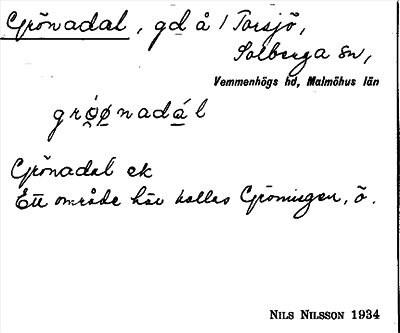 Grönadal, gd å 1 Torsjö,
Solberga sn,
Vemmenhögs hd, Malmöhus län
grǿ̯ø̯nadá̱l
Grönadal ek
Ett område här kallas Gröningen, ö.
NILS NILSSON 1934